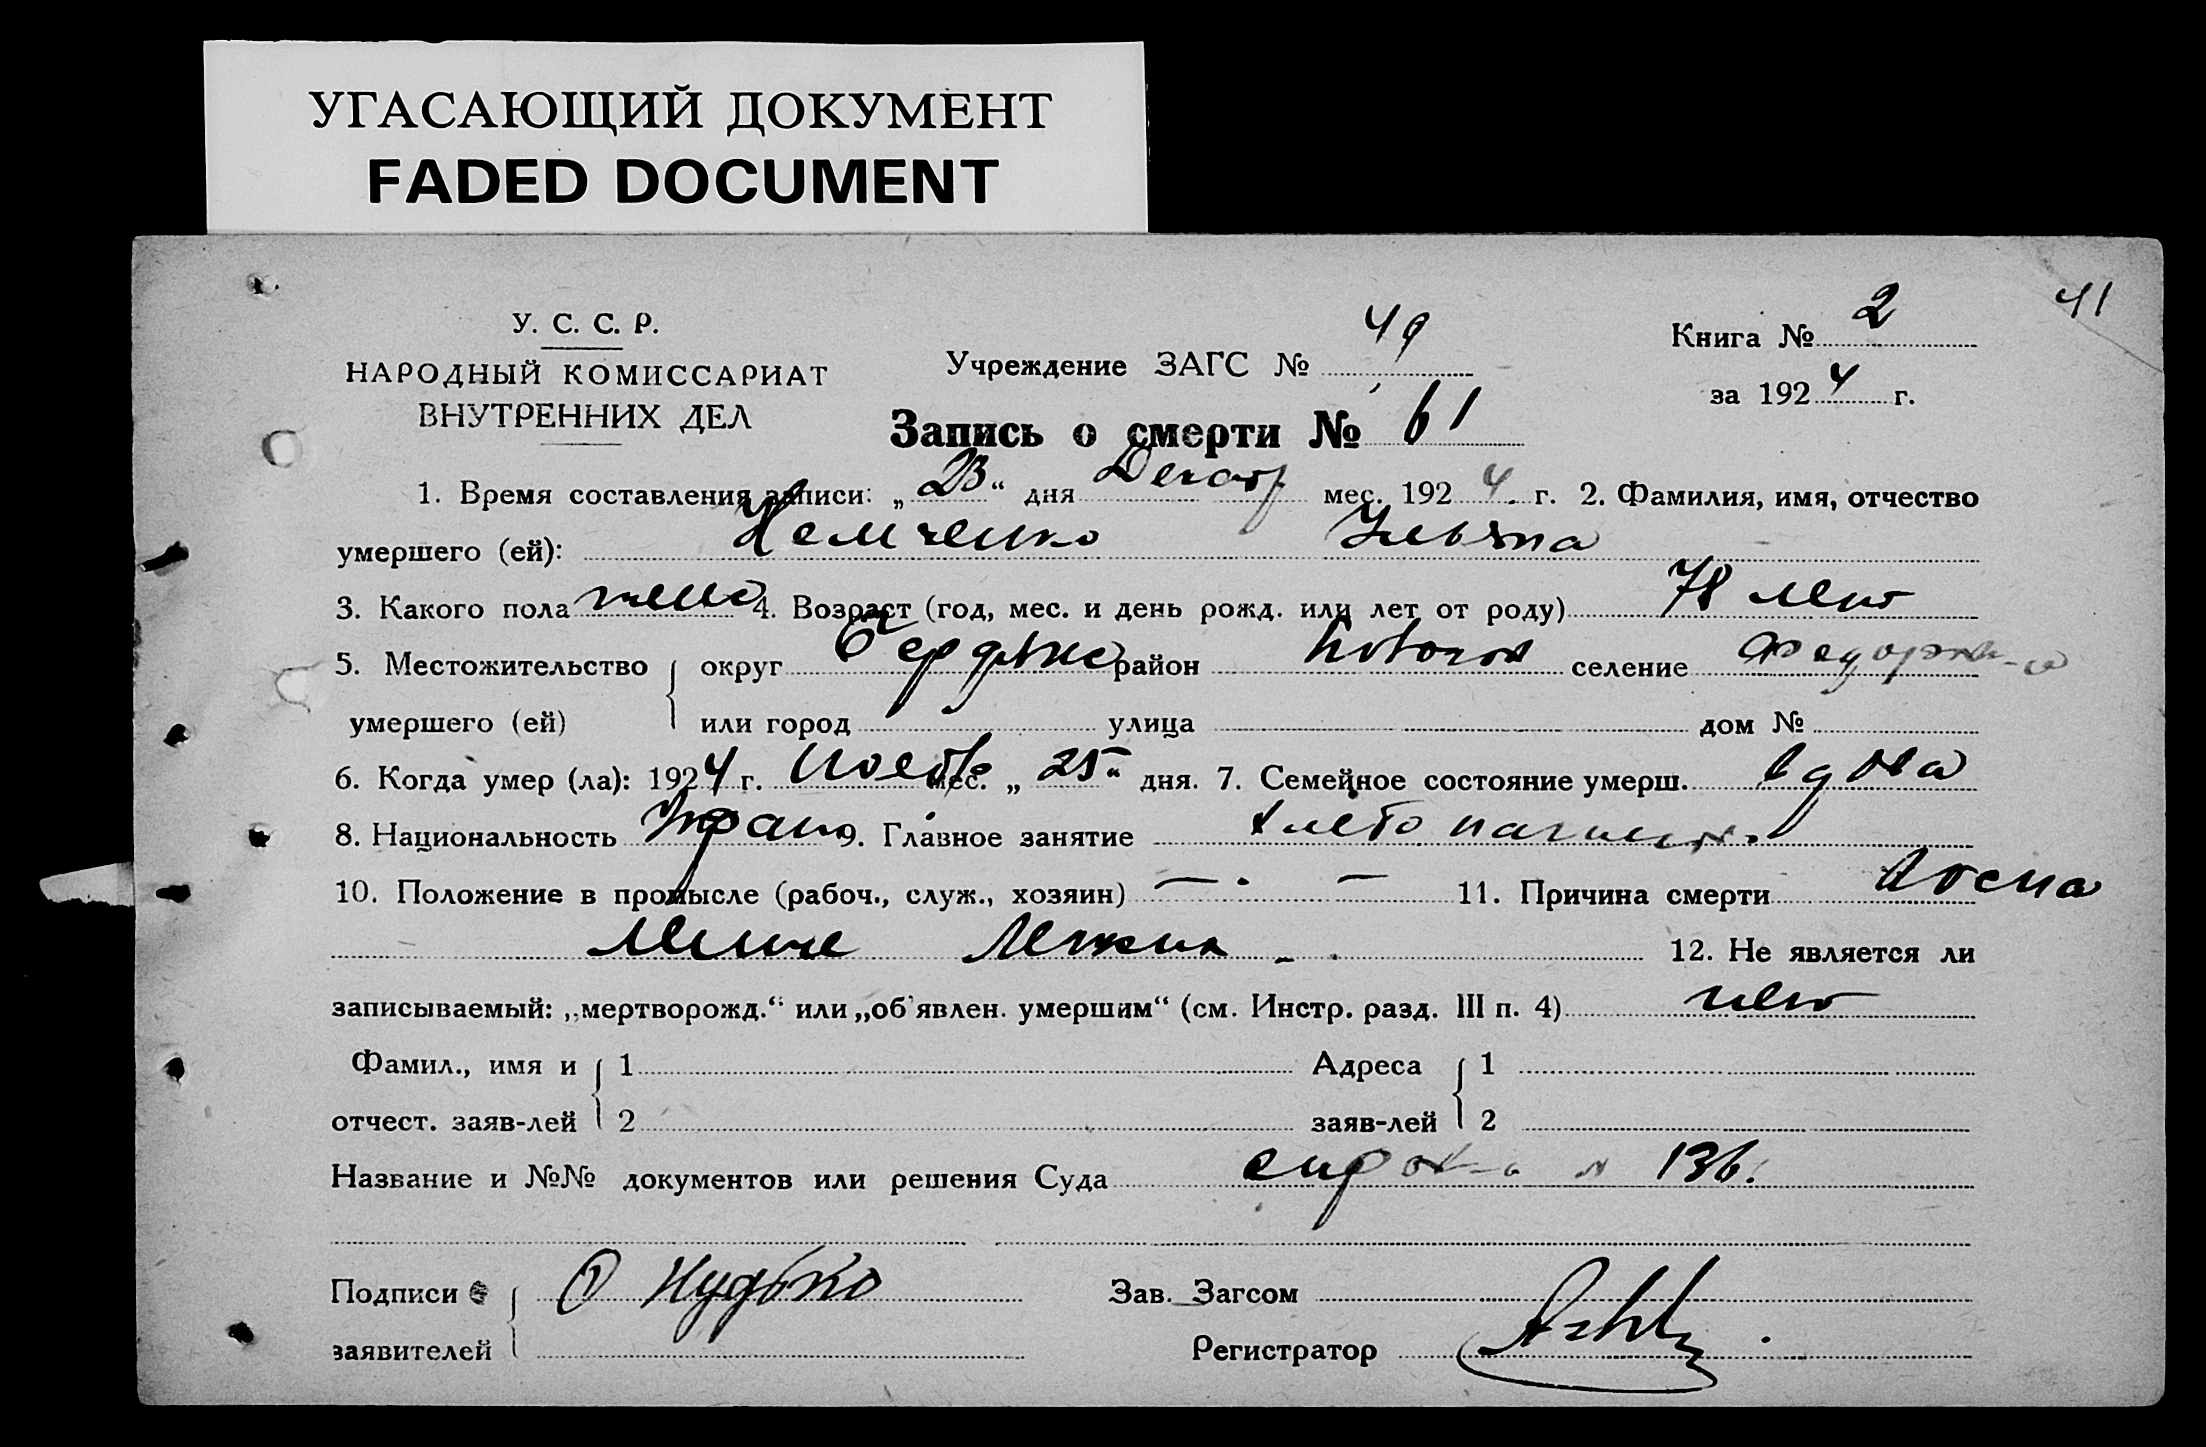 УГАСАЮЩИЙ ДОКУМЕНТ
FADED DOCUMENT
41
У. С. С. Р.
НАРОДНЫЙ КОМИССАРИАТ
ВНУТРЕННИХ ДЕЛ
Учреждение ЗАГС № 49
Книга № 2
за 1924 г.
Запись о смерти № 61
1. Время составления записи: „23“ дня мес. 1924 г. 2. Фамилия, имя, отчество
умершего (ей): Немченко Ульяна
3. Какого пола 4. Возраст (год, мес. и день рожд. или лет от роду) 78 лет
5. Местожительство округ район селение
умершего (ей) или город улица дом №
6. Когда умер (ла): 1924 г. мес. „25“ дня. 7. Семейное состояние умерш. вдова
8. Национальность 9. Главное занятие
10. Положение в промысле (рабоч., служ., хозяин) — — 11. Причина смерти
12. Не является ли
записываемый: „мертворожд.“ или „об'явлен. умершим“ (см. Инстр. разд. III п. 4) нет
Фамил., имя и 1 Адреса 1
отчест. заяв-лей 2 заяв-лей 2
Название и №№ документов или решения Суда 136.
Подписи Зав. Загсом
заявителей Регистратор